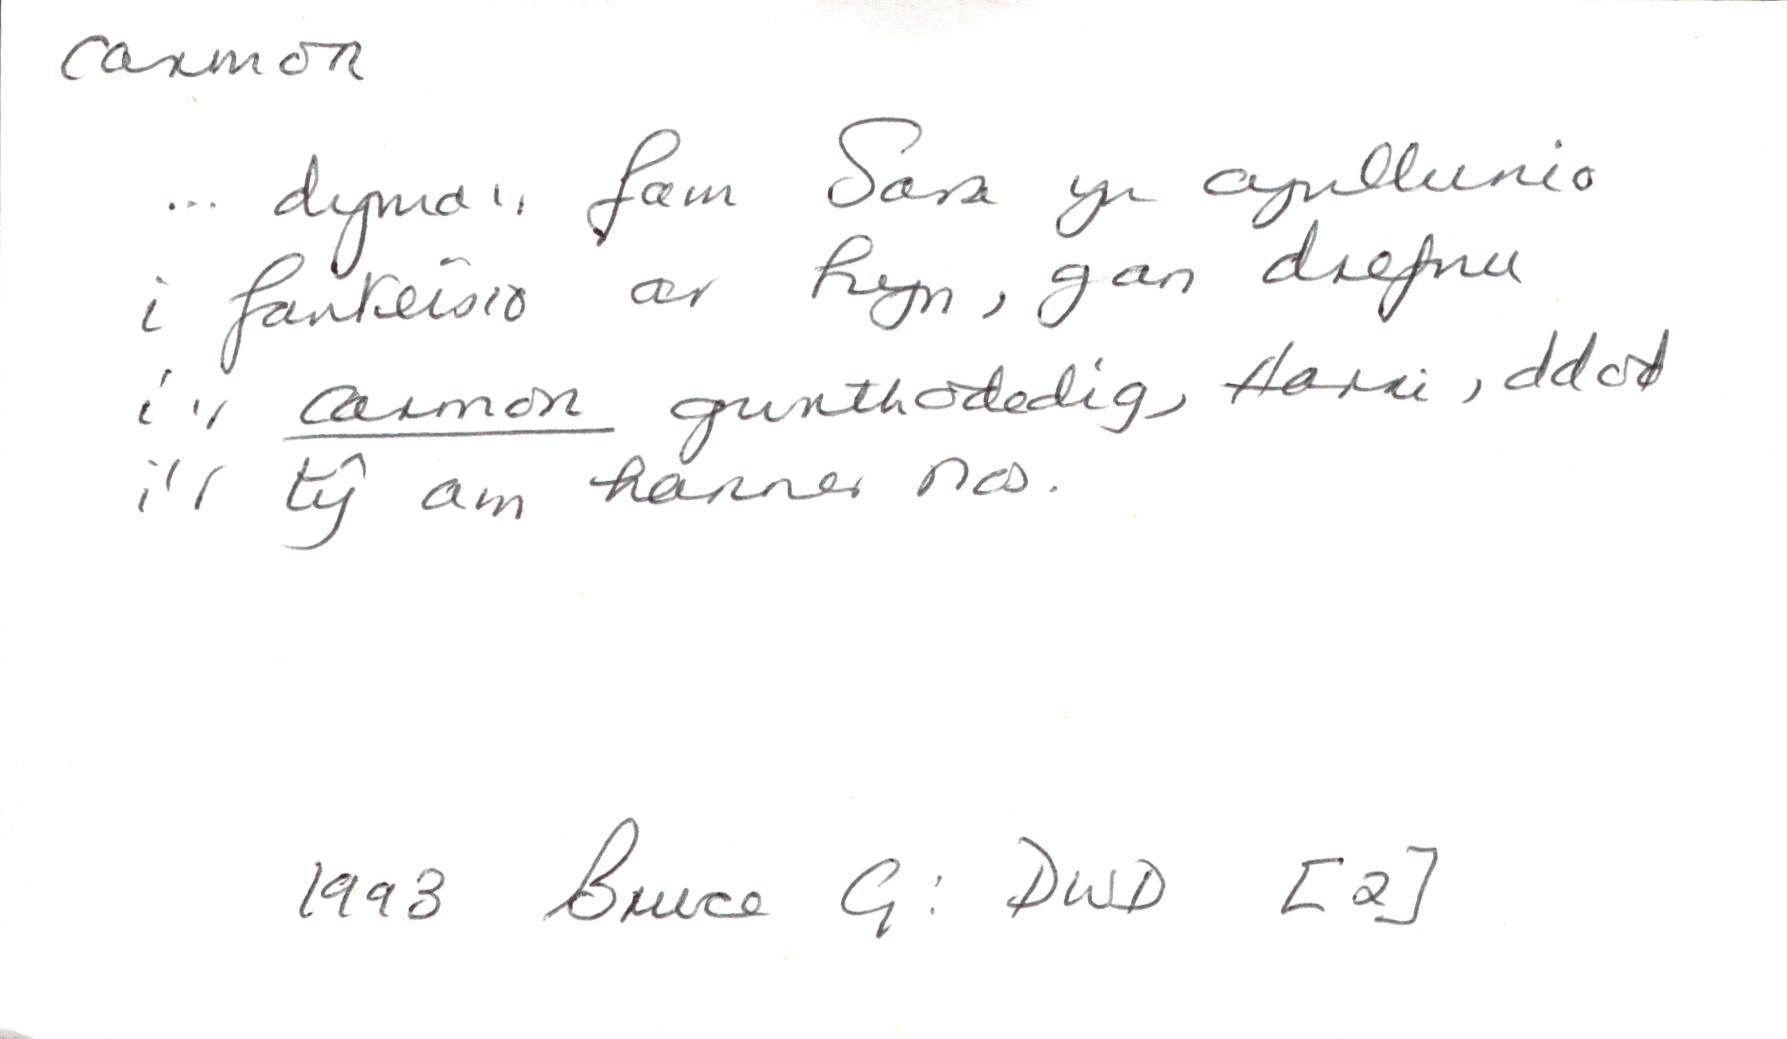 carmon
... dyma'r fam Sara yn cynllunio
i fanteisio ar hyn, gan drefnu
i'r carmon gwrthodedig, Harri, ddod
i'r tŷ am hanner nos.
1993 Bruce G: DWD [2]